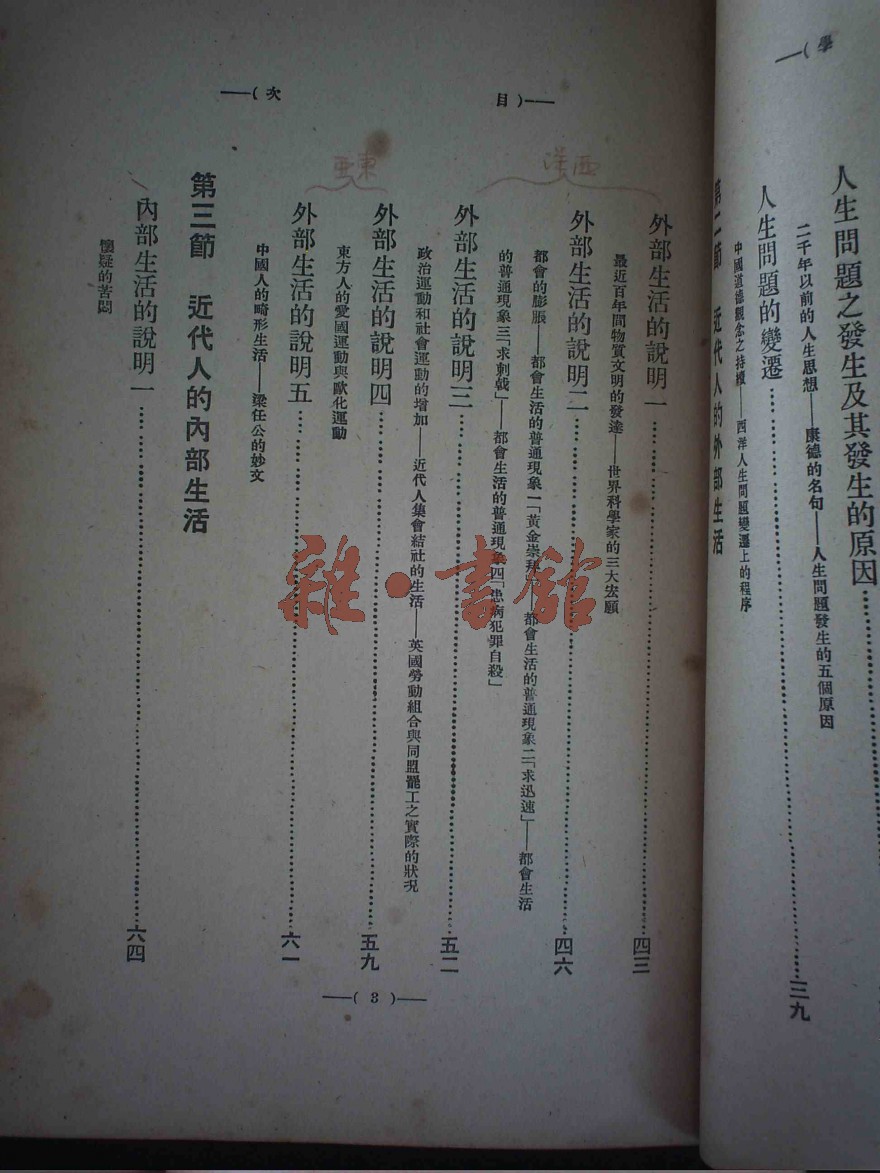 學)—
人生問題之發生及其發生的原因……
二千年以前的人生思想——康德的名句——人生問題發生的五個原因
人生問題的變遷……三九
中國道德觀念之持續——西洋人生問題變遷上的程序
第二節 近代人的外部生活
—(目
次)—
西洋
東亞
外部生活的說明一……四三
最近百年間物質文明的發達——世界科學家的三大宏願
外部生活的說明二……四六
都會的膨脹——都會生活的普通現象一「黃金崇拜」——都會生活的普通現象二「求迅速」——都會生活
的普通現象三「求刺戟」——都會生活的普通現象四「患病犯罪自殺」
外部生活的說明三……五二
政治運動和社會運動的增加——近代人集會結社的生活——英國勞動組合與同盟罷工之實際的狀況
外部生活的說明四……五九
東方人的愛國運動與歐化運動
外部生活的說明五……六一
中國人的畸形生活——梁任公的妙文
第三節 近代人的內部生活
內部生活的說明一……六四
懷疑的苦悶
—(3)—
雜·書館